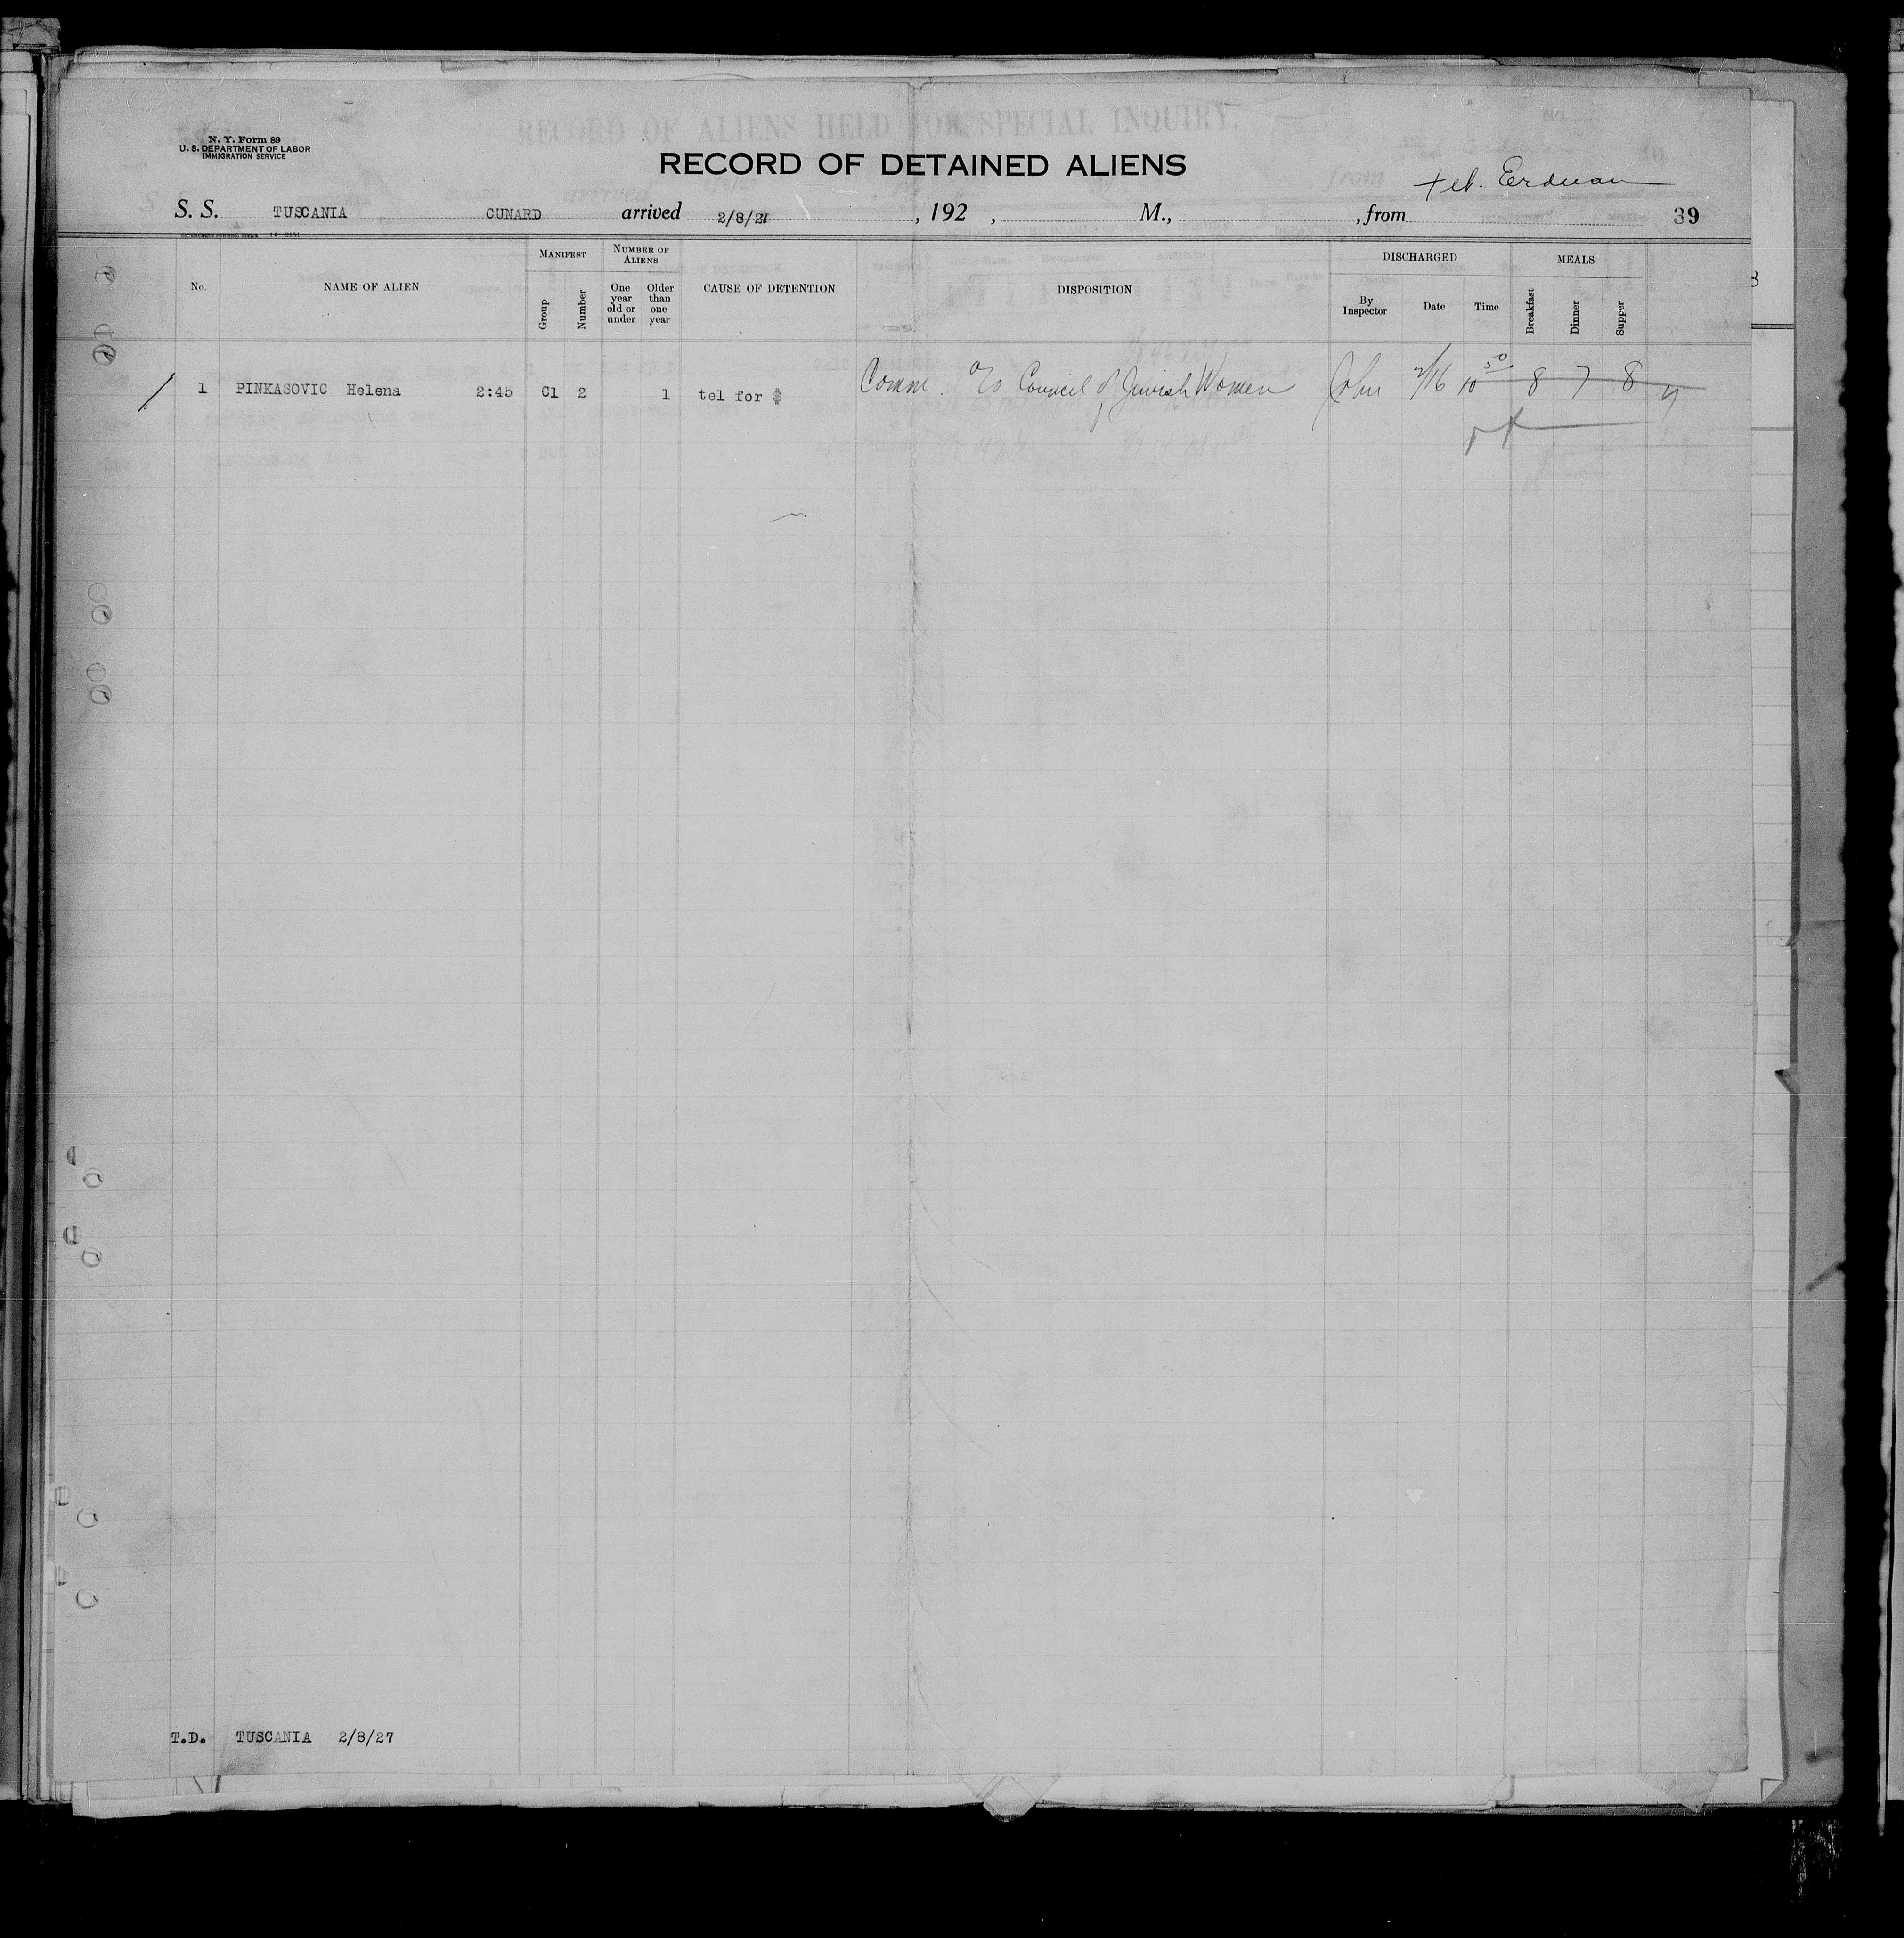 N. Y. Form 89
U. S. DEPARTMENT OF LABOR
IMMIGRATION SERVICE
RECORD OF DETAINED ALIENS
S. S. TUSCANIA CUNARD arrived 2/8/27, 192 , M., , from 39
No. NAME OF ALIEN MANIFEST Group Number NUMBER OF ALIENS One year old or under Older than one year CAUSE OF DETENTION DISPOSITION DISCHARGED By Inspector Date Time MEALS Breakfast Dinner Supper
1 PINKASOVIC Helena 2:45 C1 2 1 tel for $ Comm. c/o Council of Jewish Women 2/16 10 50 8 7 8
T.D. TUSCANIA 2/8/27